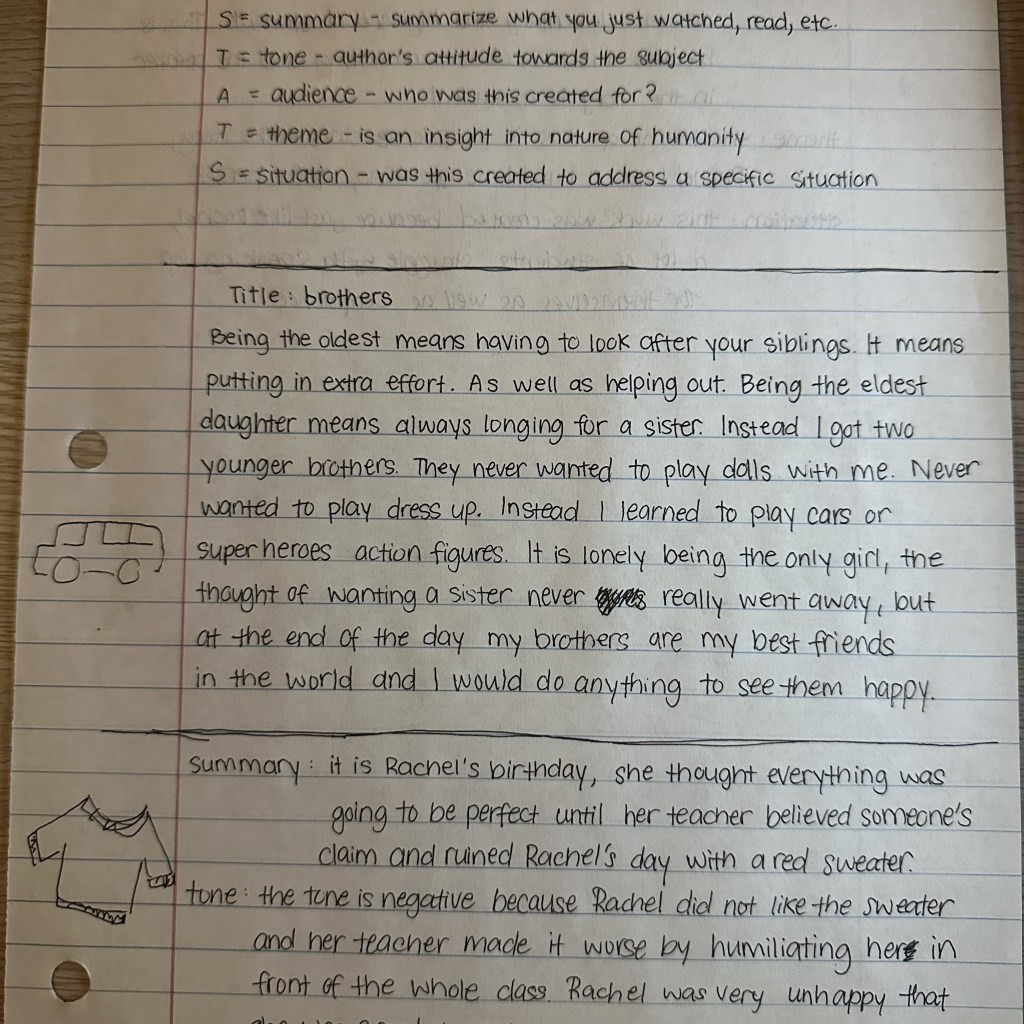 S = summary - summarize what you just watched, read, etc.
T = tone - author's attitude towards the subject
A = audience - who was this created for?
T = theme - is an insight into nature of humanity
S = situation - was this created to address a specific situation
Title: brothers
Being the oldest means having to look after your siblings. It means
putting in extra effort. As well as helping out. Being the eldest
daughter means always longing for a sister. Instead I got two
younger brothers. They never wanted to play dolls with me. Never
wanted to play dress up. Instead I learned to play cars or
superheroes action figures. It is lonely being the only girl, the
thought of wanting a sister never really went away, but
at the end of the day my brothers are my best friends
in the world and I would do anything to see them happy.
summary: it is Rachel's birthday, she thought everything was
going to be perfect until her teacher believed someone's
claim and ruined Rachel's day with a red sweater.
tone: the tone is negative because Rachel did not like the sweater
and her teacher made it worse by humiliating her in
front of the whole class. Rachel was very unhappy that